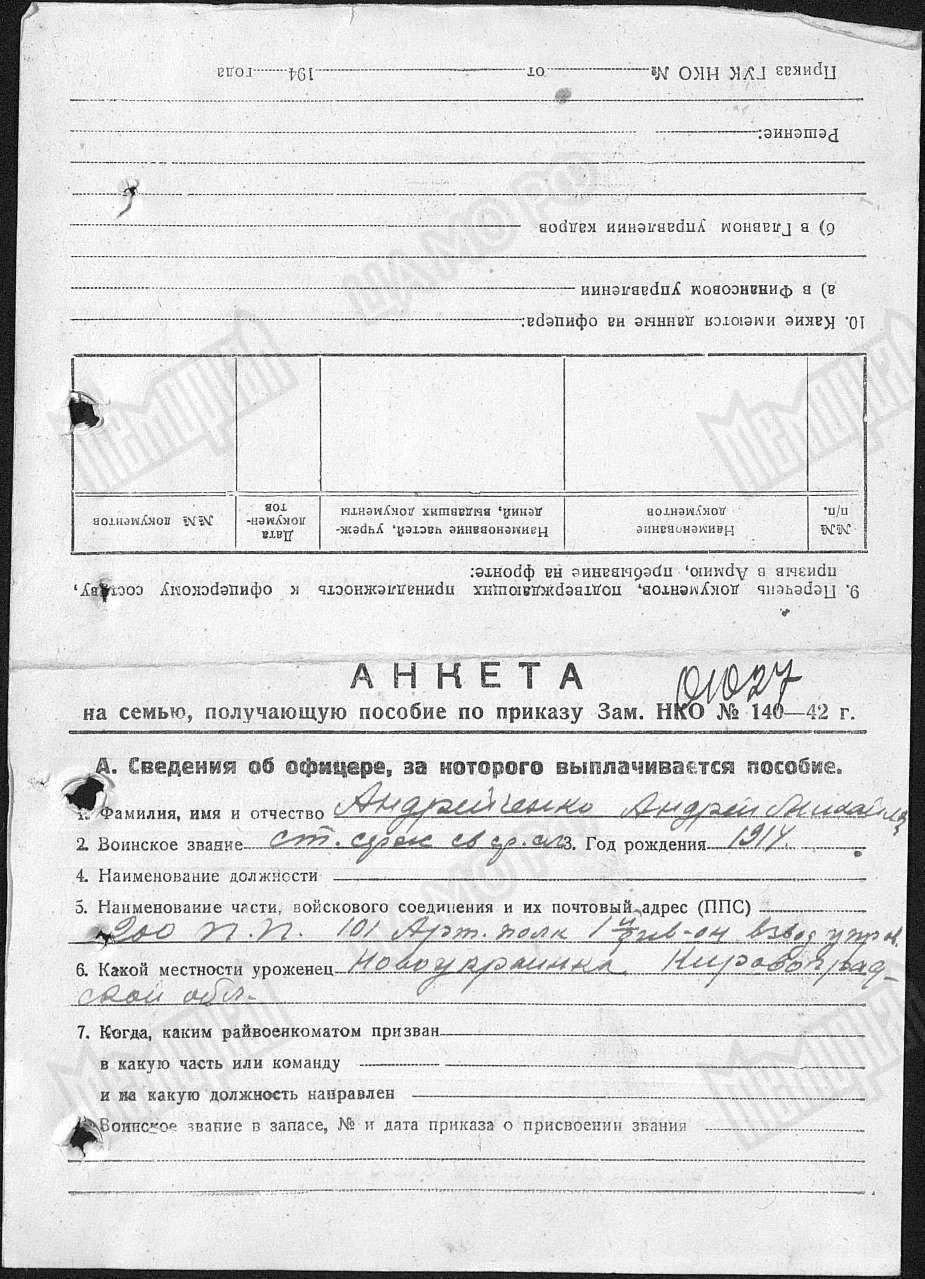 Приказ ГУК НКО № от 194 года
Решение:
б) в Главном управлении кадров
а) в Финансовом управлении
10. Какие имеются данные на офицера:
№№ п/п. Наименование документов Наименование частей, учреж-дений, выдавших документы Дата докумен-тов №№ документов
9. Перечень документов, подтверждающих принадлежность к офицерскому составу,
призыв в Армию, пребывание на фронте:
01027
АНКЕТА
на семью, получающую пособие по приказу Зам. НКО № 140—42 г.
А. Сведения об офицере, за которого выплачивается пособие.
1. Фамилия, имя и отчество Андрейченко Андрей
2. Воинское звание ст. 3. Год рождения 1914
4. Наименование должности
5. Наименование части, войскового соединения и их почтовый адрес (ППС)
200 п.п. 101 Арт. полк 1й див-он взвод управ.
6. Какой местности уроженец Новоукраинка Кировоград-
ской обл.
7. Когда, каким райвоенкоматом призван
в какую часть или команду
и на какую должность направлен
Воинское звание в запасе, № и дата приказа о присвоении звания
ЦАМО РФ
Мемориал
Мемориал
ЦАМО РФ
Мемориал
Мемориал